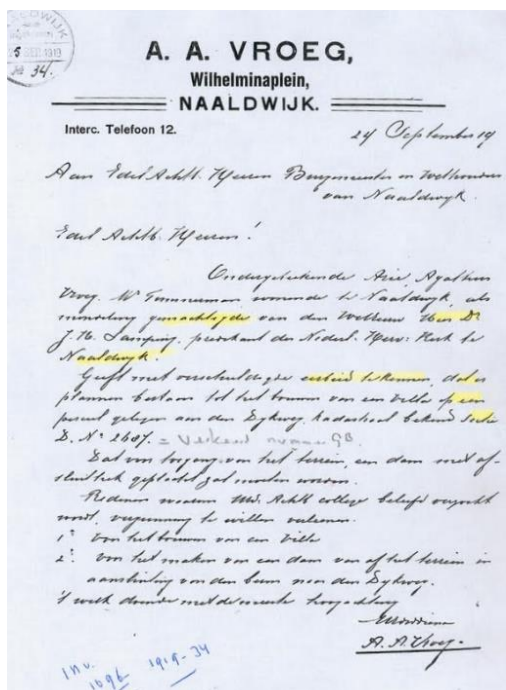 NAALDWIJK
5 SEP. 1919
No 34.
A. A. VROEG,
Wilhelminaplein,
NAALDWIJK.
Interc. Telefoon 12.
24 September 19
Aan Edel Achtb. Heeren Burgemeester en Wethouders
van Naaldwijk.
Edel Achtb. Heeren!
Ondergeteekende Arie, Agathus
Vroeg. Mr Timmerman, wonende te Naaldwijk, als
mondeling gemachtigde van den Weleerw Heer Dr
J. H. Lamping, predikant der Nederl. Herv. Kerk te
Naaldwijk.
Geeft met verschuldigde eerbied te kennen, dat er
plannen bestaan tot het bouwen van een Villa op een
perceel gelegen aan den Dijkweg, kadastraal bekend Sectie
D. No 2687. =
Dat voor toegang van het terrein, een dam met af-
sluithek geplaatst zal moeten worden.
Redenen waarom Uwd. Achtb college beleefd verzocht
wordt, vergunning te willen verleenen.
1o. voor het bouwen van een Villa
2o. voor het maken van een dam van af het terrein in
aansluiting van den berm naar den Dijkweg.
't welk doende met de meeste hoogachting
A. A. Vroeg.
Inv.
1096 1919-34